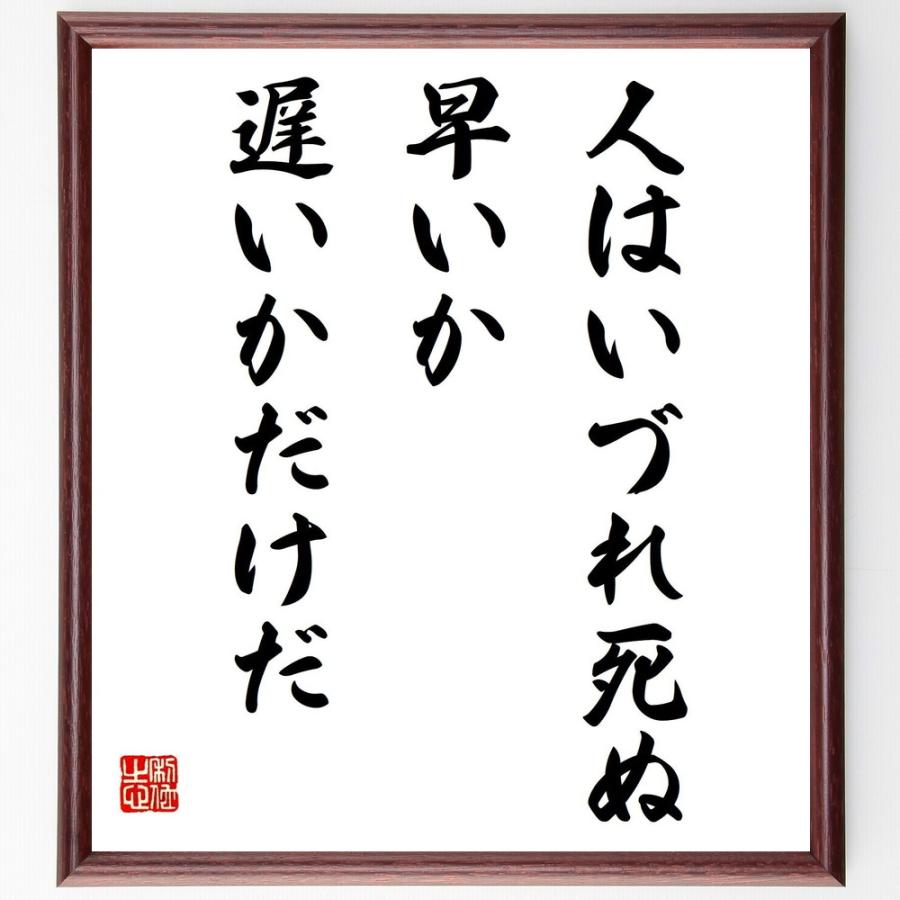 人はいづれ死ぬ
早いか
遅いかだけだ